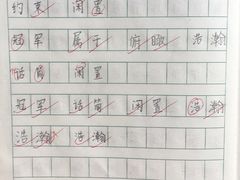 约束 闲置
冠军 属于 俯瞰 浩瀚
话筒 闲置
冠军 话筒 闲置 浩瀚
浩瀚 浩瀚